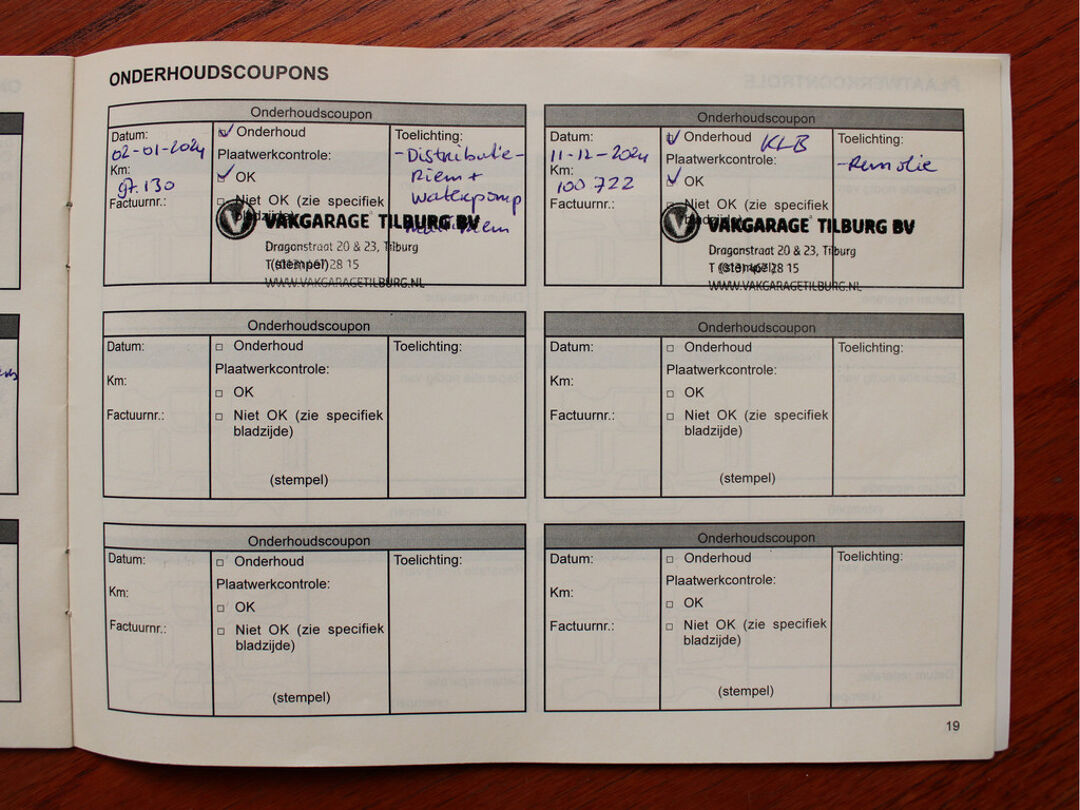 ONDERHOUDSCOUPONS
Onderhoudscoupon
Datum:
02-01-2024
Km:
97.130
Factuurnr.:
Onderhoud
Plaatwerkcontrole:
OK
Niet OK (zie specifiek
bladzijde)
(stempel)
VAKGARAGE TILBURG BV
Dragonstraat 20 & 23, Tilburg
28 15
WWW.VAKGARAGETILBURG.NL
Toelichting:
-Distributie-
Riem +
waterpomp
Onderhoudscoupon
Datum:
11-12-2024
Km:
100 722
Factuurnr.:
Onderhoud KLB
Plaatwerkcontrole:
OK
Niet OK (zie specifiek
bladzijde)
(stempel)
VAKGARAGE TILBURG BV
Dragonstraat 20 & 23, Tilburg
28 15
WWW.VAKGARAGETILBURG.NL
Toelichting:
-Remolie
Onderhoudscoupon
Datum:
Km:
Factuurnr.:
Onderhoud
Plaatwerkcontrole:
OK
Niet OK (zie specifiek
bladzijde)
(stempel)
Toelichting:
Onderhoudscoupon
Datum:
Km:
Factuurnr.:
Onderhoud
Plaatwerkcontrole:
OK
Niet OK (zie specifiek
bladzijde)
(stempel)
Toelichting:
Onderhoudscoupon
Datum:
Km:
Factuurnr.:
Onderhoud
Plaatwerkcontrole:
OK
Niet OK (zie specifiek
bladzijde)
(stempel)
Toelichting:
Onderhoudscoupon
Datum:
Km:
Factuurnr.:
Onderhoud
Plaatwerkcontrole:
OK
Niet OK (zie specifiek
bladzijde)
(stempel)
Toelichting:
19